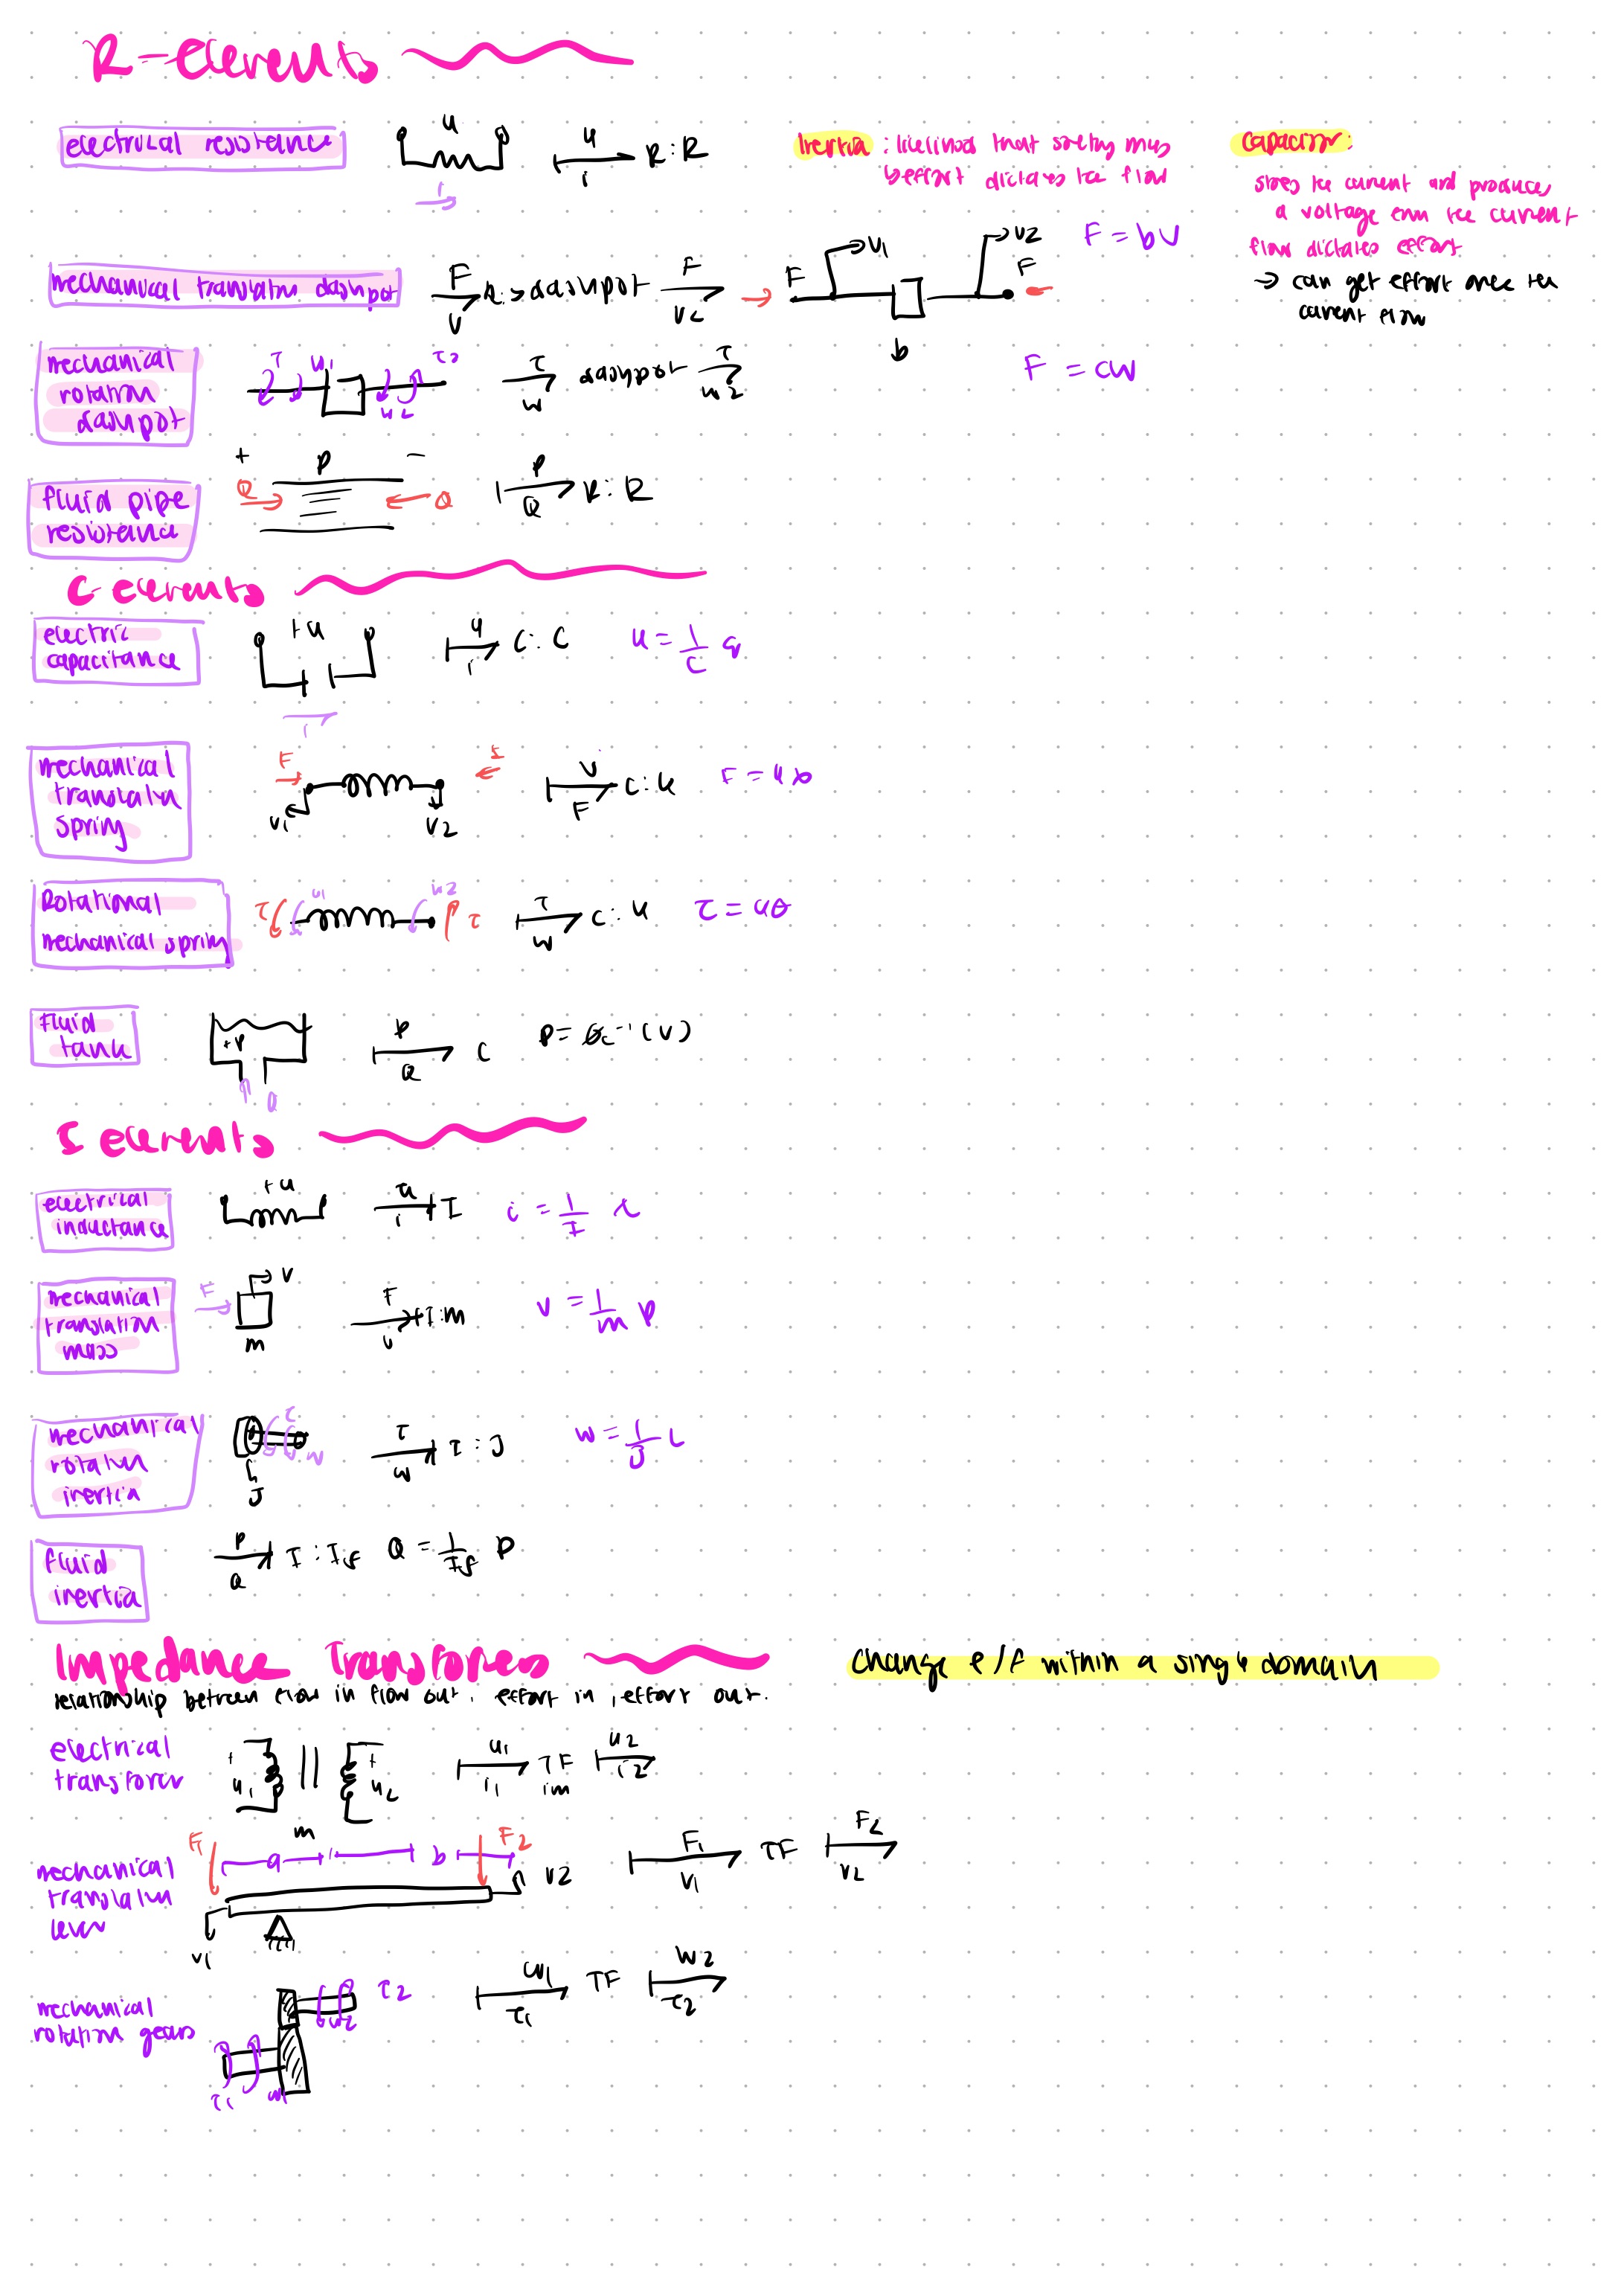 R-elements
electrical resistance
u
i
u
i
R : R
Inertia : likelihood that smthg moves
effort dictates the flow
Capacitor:
stores the current and produces
a voltage from the current
flow dictates effort
→ can get effort once the
current flow
mechanical translation dashpot
F
V
R → dashpot
F
V2
F
V1
V2
F
b
F = bV
mechanical
rotation
dashpot
τ
w1
τ2
w2
τ
w
dashpot
τ
w2
F = cw
fluid pipe
resistance
+ P −
Q
Q
P
Q
R : R
C-elements
electric
capacitance
+u
i
u
i
C : C
u = 1/C q
mechanical
translation
spring
F
F
V1
V2
V
F
C : k
F = kx
Rotational
mechanical spring
τ
w1
w2
τ
τ
w
C : k
τ = kθ
fluid
tank
+P
Q
P
Q
C
P = Φc⁻¹ (V)
I elements
electrical
inductance
+u
u
i
I
i = 1/I λ
mechanical
translation
mass
F
V
m
F
v
I : m
v = 1/m p
mechanical
rotation
inertia
τ
w
J
τ
w
I : J
w = 1/J L
fluid
inertia
P
Q
I : If
Q = 1/If P
Impedance Transformers
change e/f within a single domain
relationship between flow in flow out, effort in, effort out.
electrical
transformer
+
u1
+
u2
u1
i1
TF
:m
u2
i2
mechanical
translation
lever
F1
m
a
b
F2
V2
V1
F1
V1
TF
F2
V2
mechanical
rotation gears
τ2
w2
τ1
w1
w1
τ1
TF
w2
τ2